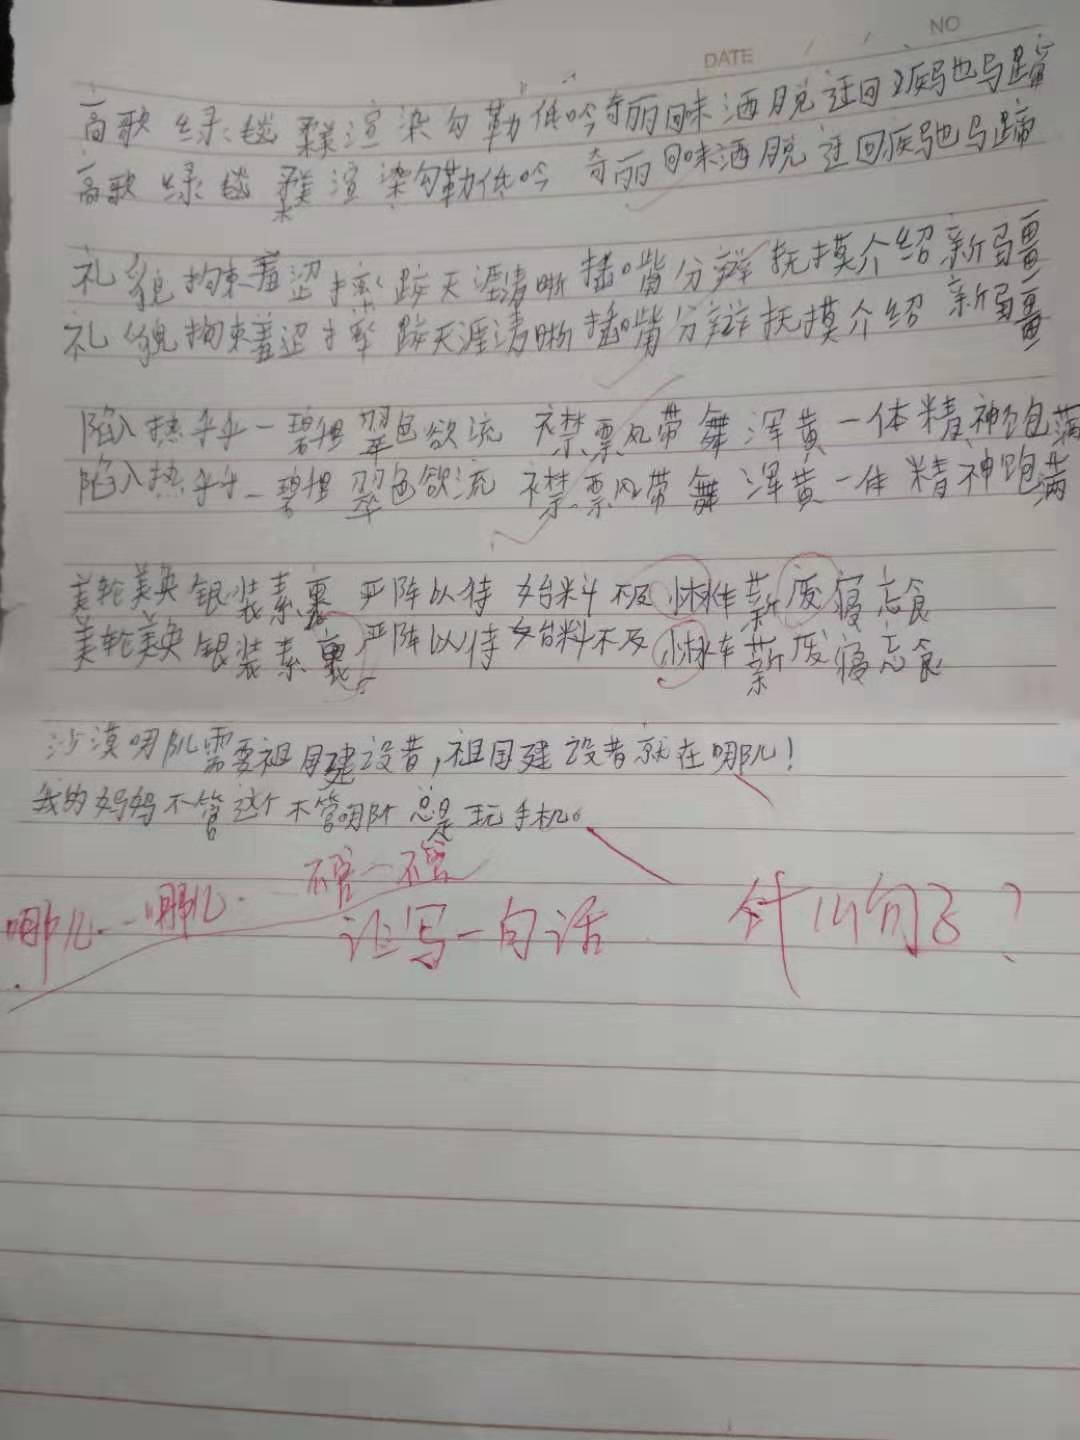 DATE / / NO
高歌 绿毯 柔美 渲染 勾勒 低吟 奇丽 回味 洒脱 迂回 疾驰 马蹄
高歌 绿毯 柔美 渲染 勾勒 低吟 奇丽 回味 洒脱 迂回 疾驰 马蹄
礼貌 拘束 羞涩 摔跤 天涯 清晰 插嘴 分辨 抚摸 介绍 新疆
礼貌 拘束 羞涩 摔跤 天涯 清晰 插嘴 分辩 抚摸 介绍 新疆
陷入 热乎乎 一碧 翠色欲流 襟飘带舞 浑黄一体 精神饱满
陷入 热乎乎 一碧 翠色欲流 襟飘带舞 浑黄一体 精神饱满
美轮美奂 银装素裹 严阵以待 始料不及 车薪 废寝忘食
美轮美奂 银装素裹 严阵以待 始料不及 车薪 废寝忘食
沙漠哪儿需要祖国建设者,祖国建设者就在哪儿!
我的妈妈不管这个不管哪个总是玩手机。
不管一不管
哪儿..哪儿. 让写一句话 什么句子?